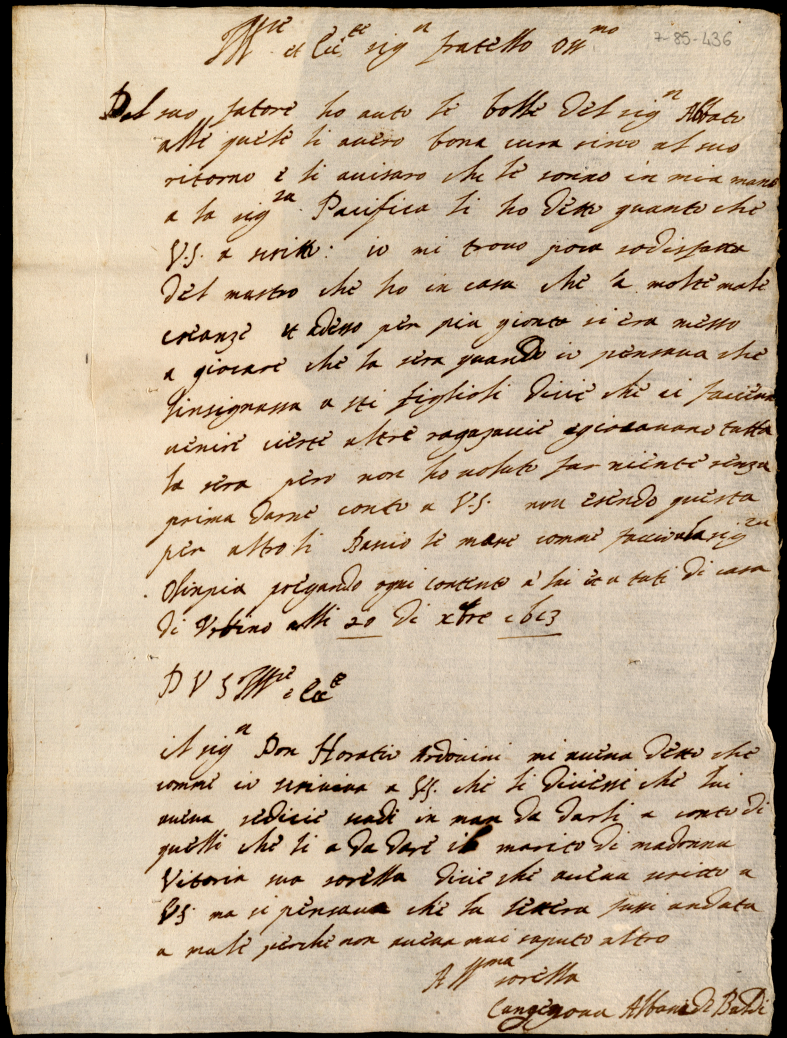 Ill^re et Ecc^te sig^r fratello oss^mo
7-85-436
Dal suo fatore ho auto le bolle del sig^r Abbate
alle quele li avero bona cura sino al suo
ritorno e li avisaro che le sonno in mia mano
a la sig^ra Pacifica li ho dette quanto che
V.S. a scritt: io mi trovo poca sodisfatta
del mastro che ho in casa che a molte male
creanze et adesso per piu gionta si era messo
a giocare che la sera quando io pensava che
l'insignassa a sti figlioli dicie che ci faciena
venire cierte altre ragazzacie e giocavano tutta
la sera pero non ho voluto far niente senza
prima darne conto a V.S. non esendo questa
per altro li Bascio le mane comme faccio a la sig^ra
Olinpia pregando ogni contento a lei et a tuti di casa
di Vrbino alli 20 di xbre 1613
D V S Ill^re e Ecc^te
il sig^r Don Horatio Ardovini mi aveva dette che
comme io scriviva a V.S. che li diciessi che lui
aveva sedicie scudi in man da darli a conto di
quelli che li a da dare il marito di madonna
Vitoria sua sorella dicie che aveva scritto a
V.S. ma si pensava che la lettera fussi andata
a male perche non aveva mai saputo altro
Aff^ma sorella
Albani di Baldi